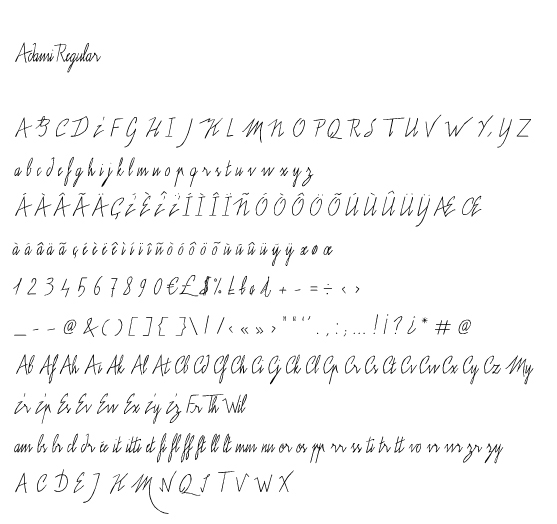 Adami Regular
A B C D E F G H I J K L M N O P Q R S T U V W X Y Z
a b c d e f g h i j k l m n o p q r s t u v w x y z
Á À Â Ã Ä Ç É È Ê Ë Í Ì Î Ï Ñ Ó Ò Ô Ö Õ Ú Ù Û Ü Ÿ Æ Œ
à á â ä ã ç é è ê í ì ï î ñ ò ó ô ö õ ù ú û ü ÿ æ ø œ
1 2 3 4 5 6 7 8 9 0 € £ $ % + - = ÷ ‹ ›
_ - - @ & ( ) [ ] { } \ | / ‹ « » › " " ' ' . , : ; ... ! ¡ ? ¿ * # @
Ab Af Ah Ai Ak Al At Cb Cd Cf Ch Ci Ck Cl Cp Cr Cs Ct Cv Cw Cx Cy Cz My
Er Ep Es Ev Ew Ex Ey Ez Fr Th Wil
am bs br cl dr ee it itti et fi fl ff ft ll lt mm nu or os pp rr ss ti tr tt vo vr wr zr zy
A C D E J K M N Q S T V W X